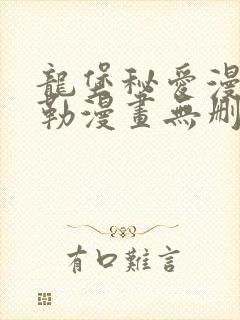 龍堡秘愛漫
勒漫畫無刪
有口難言